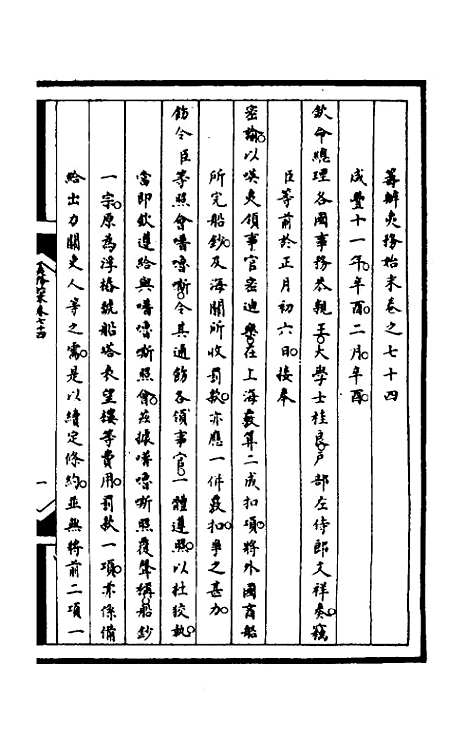 籌辦夷務始末卷之七十四
咸豐十一年辛酉二月辛酉
欽命總理各國事務恭親王大學士桂良戶部左侍郎文祥奏竊
臣等前於正月初六日接奉
密諭以嘆夷領事官密迪樂在上海覈算二成扣項將外國商船
所完船鈔及海關所收罰款亦應一併覈扣爭之甚力
飭令臣等照會嚕嘶令其通飭各領事官一體遵照以杜狡執
當即欽遵給與嚕嘶照會茲據嚕嘶照覆聲稱船鈔
一宗原為浮樁號船塔表望樓等費用罰款一項亦係備
給出力關夷人等之需是以續定條約並無將前二項一
一